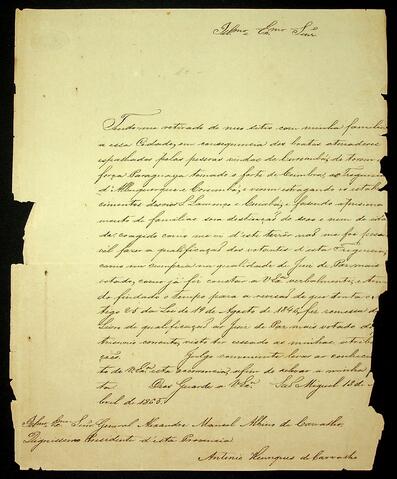 Illmo. Exmo. Snr.
Tendo-me retirado de meu sitio com minha familia
a essa Cidade, em consequencia dos boatos aterradores
espalhados pelas pessoas vindas de Corumbá, de terem
força Paraguaya tomado o forte de Coimbra, as Freguesias
d'Albuquerque e Corumbá, e virem estragando os estabele-
cimentos S. Lourenço e Cuiabá, e fazendo aprisiona-
mento de familias sem destinção de sexo e nem de ida-
de, coagido como me vi d'este terror não me foi possi-
vel fazer a qualificação dos votantes d'esta Freguesia,
como me cumpria na qualidade de Juiz de Paz mais
votado, como já fiz constar a V.Exa. verbalmente; e ten-
do findado o tempo para a revisão de que trata o ar-
tigo 25 da Lei de 19 de Agosto de 1846, fiz remessa do
Livro de qualificação ao Juiz de Paz mais votado do
triennio conente, visto ter cessado as minhas attribu-
ções. Julgo conveniente levar ao conhecimen-
to de V.Exa. esta occurrencia, afim de salvar a minha
Deos Guarde a V.Exa. São Miguel 18 de
bril de 1865.
Illmo. Exmo. Snr. General Alexandre Manoel Albino de Carvalho
Dignissimo Presidente d'esta Provincia
Antonio Henriques de Carvalho